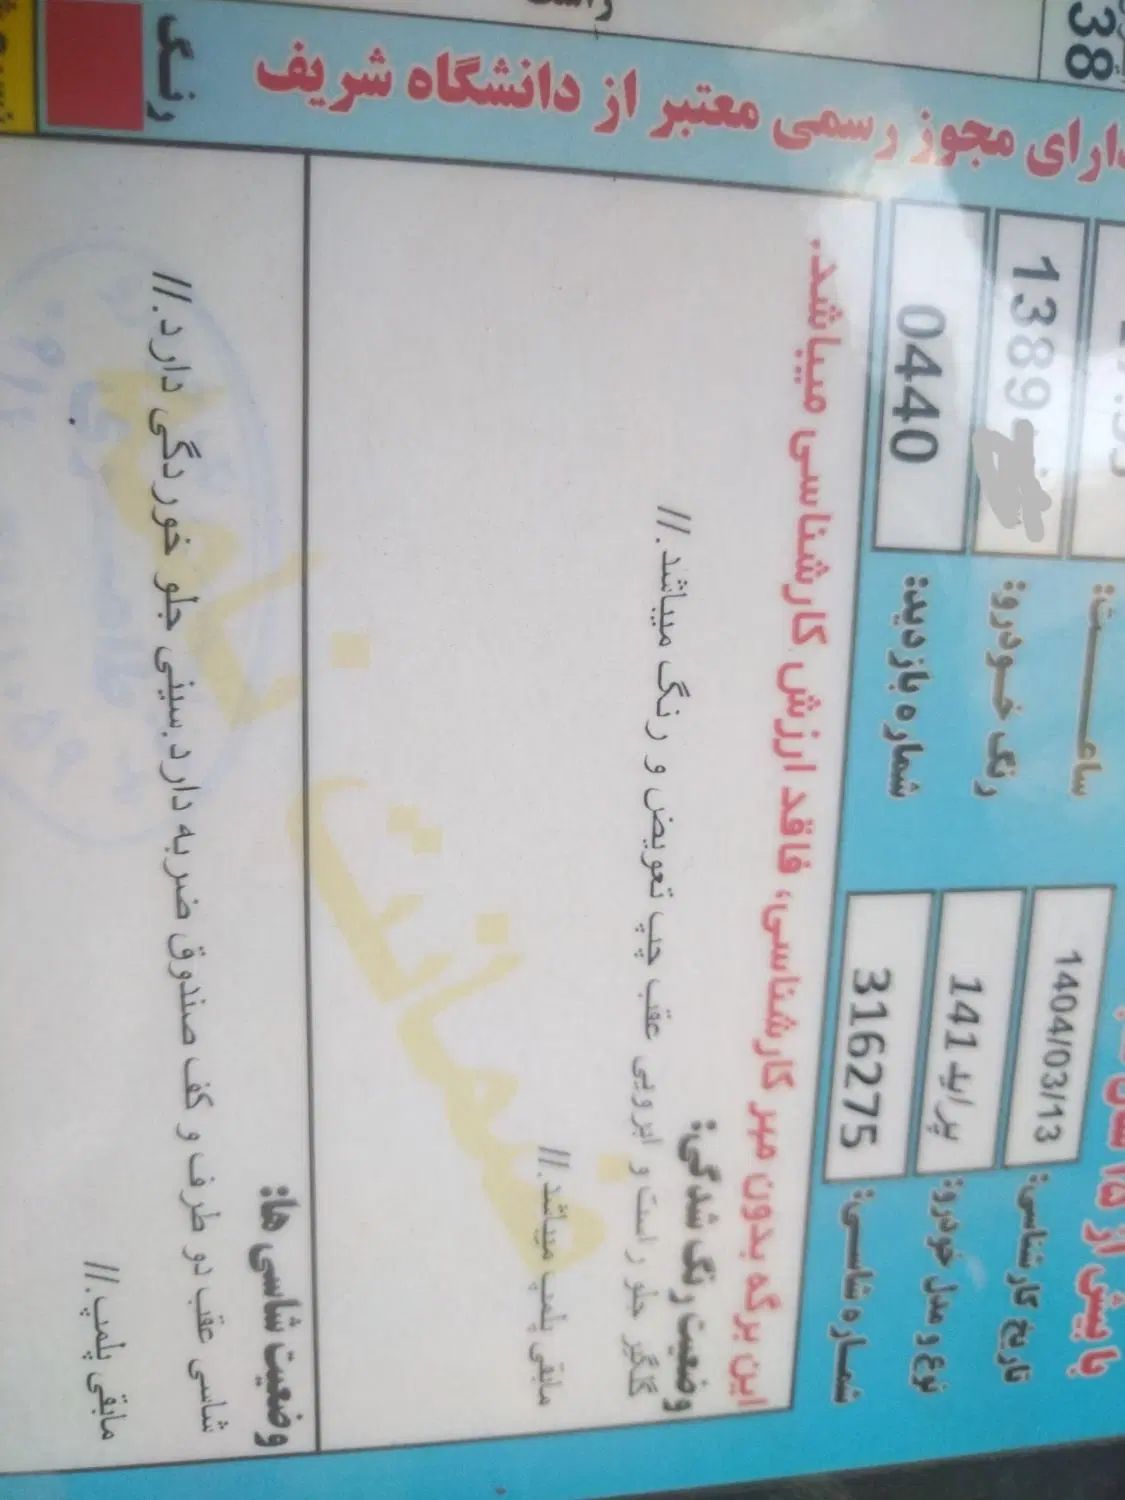 با بیش از ۱۵ سال
دارای مجوز رسمی معتبر از دانشگاه شریف
38
رنگ
تاریخ کارشناسی: 1404/03/13
ساعت:
نوع و مدل خودرو: پراید 141
رنگ خودرو: 1389
شماره شاسی: 316275
شماره بازدید: 0440
این برگه بدون مهر کارشناسی، فاقد ارزش کارشناسی میباشد.
وضعیت رنگ شدگی:
گلگیر جلو راست و ابرویی عقب چپ تعویض و رنگ میباشد.//
مابقی پلمپ میباشد.//
ضمانت نامه
وضعیت شاسی ها:
شاسی عقب دو طرف و کف صندوق ضربه دارد.سینی جلو خوردگی دارد.//
مابقی پلمپ.//